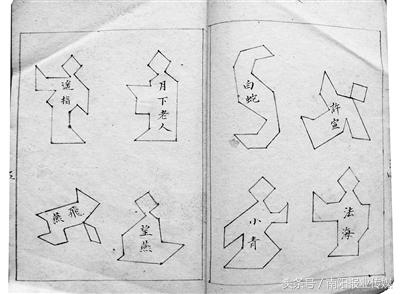 遙指
月下老人
白蛇
許宣
飛燕
望燕
小青
法海
头条号/南阳报业传媒